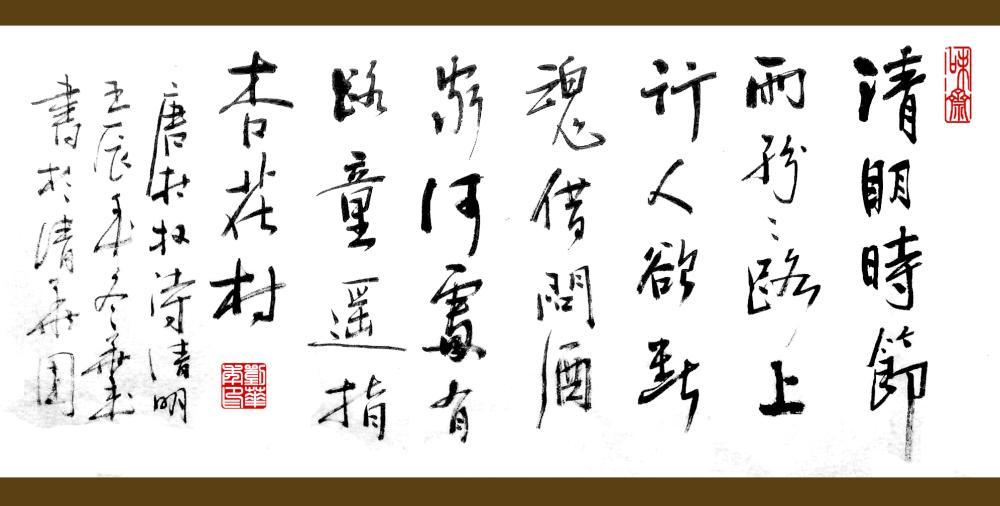 味齋
清明時節
雨紛〻路上
行人欲斷
魂借問酒
家何處有
路童遥指
杏花村
唐杜牧詩清明
壬辰年冬華
書於清華園